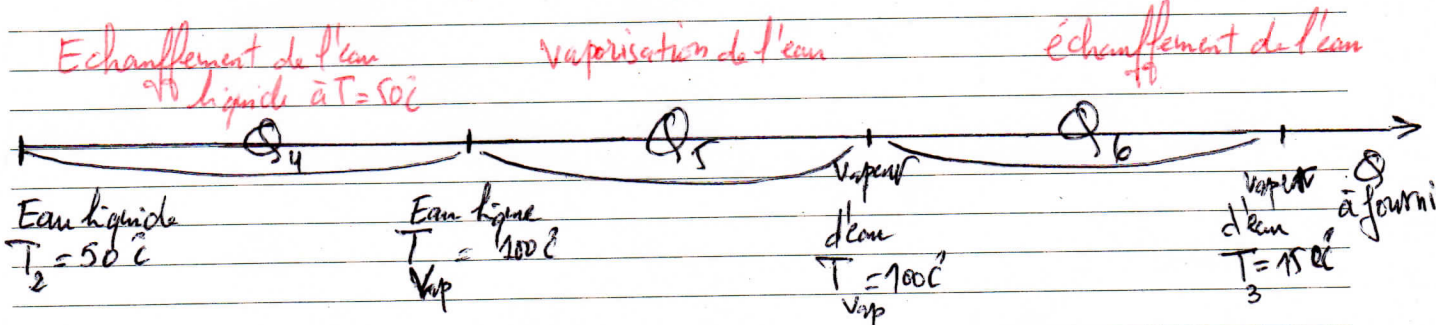 Echauffement de l'eau
liquide à T=50°C
vaporisation de l'eau
échauffement de l'eau
Q4
Q5
Q6
Eau liquide
T2 = 50°C
Eau ligne
T Vap = 100°C
vapeur
d'eau
T Vap = 100°C
vapeur
d'eau
T3 = 150°C
Q
à fourni